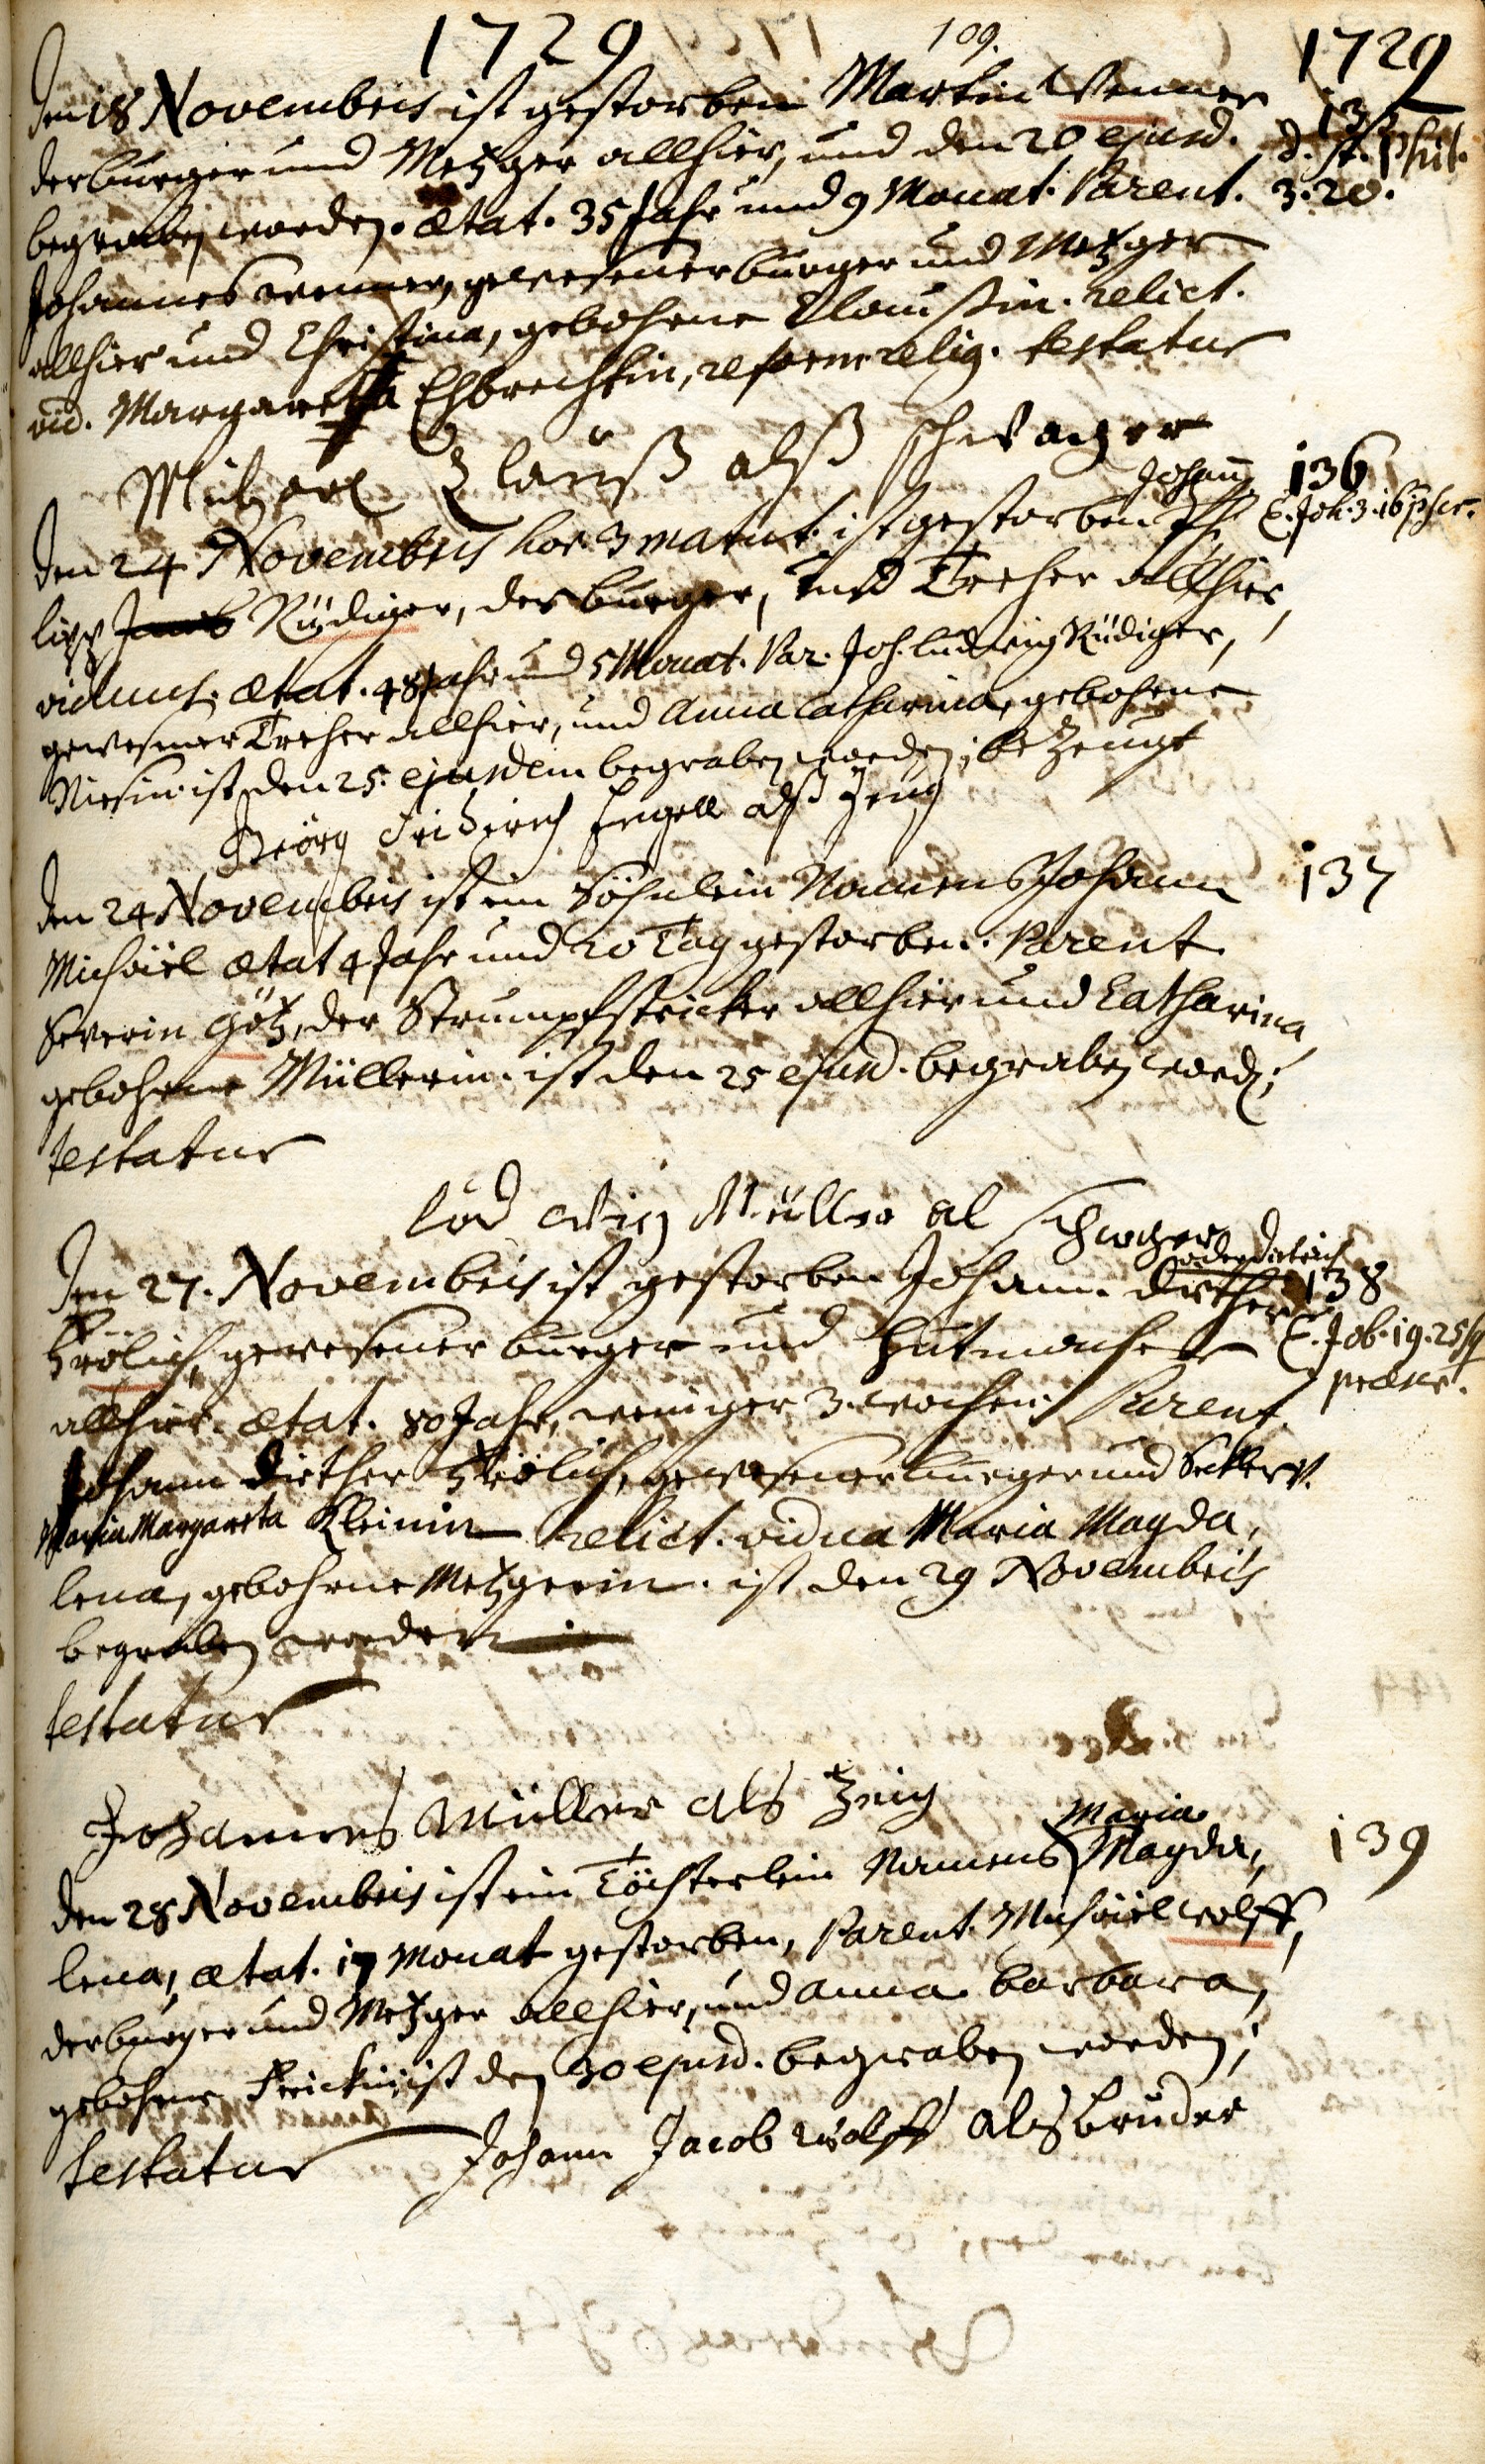 1729 109. 1729
Den 18 Novembris ist gestorben Martin Wenner 135
der burger und Metzger allhier, und den 20 ejusd. d. st. Phil.
begraben worden. ætat. 35 Jahr und 9 Monat. Parent. 3. 20.
Johannes Wenner, gewesener burger und Metzger
allhier und Christina, gebohrne Claussin. relict.
vid. Margaretha Ehbrechtin, reform relig. testatur
Michael Clauß alß schwager
Den 24 Novembris hor. 3 matut. ist gestorben Johann Phi 136
E. Joh. 3. 16
lipp Rüdiger, der burger, und Treher allhier,
viduus. ætat. 48 Jahr und 5 Monat. Par. Joh. Ludwig Rüdiger,
gewesener Treher allhier, und Anna Catharina, gebohrne
Niesin. ist den 25. ejusdem begraben worden; bezeugt
Geörg Fridirich Engell alß Zeug
Den 24 Novembris ist ein Söhnlein Namens Johann 137
Michäel ætat 4 Jahr und 20 Tag gestorben. Parent
Severin Götz, der Strumpfstricker allhier und Catharina
gebohrne Müllerin. ist den 25 ejusd. begraben word;
testatur
Lod Wig Müller al schwager
Den 27. Novembris ist gestorben Johann Diether oder Dieterich 138
Frölich, gewesener burger und Hutmacher E. Job. 19. 25 sq
allhier. ætat. 80 Jahr, weniger 3 wochen. Parent.
Johann Diether Frölich, gewesener burger und Seckler
Maria Margareta Kleinin relict. vidua Maria Magda,
lena, gebohrne Metzgerin. ist den 29 Novembris
begraben worden
testatur
Johannes Müller als Zeig
Den 28 Novembris ist ein Töchterlein Namens Maria Magda, 139
lena, ætat. 17 Monat gestorben, Parent. Michäel Wolff,
der burger und Metzger allhier, und Anna Barbara,
gebohrne Frickin; ist den 30 ejusd. begraben worden;
testatur Johann Jacob Wolff als bruder